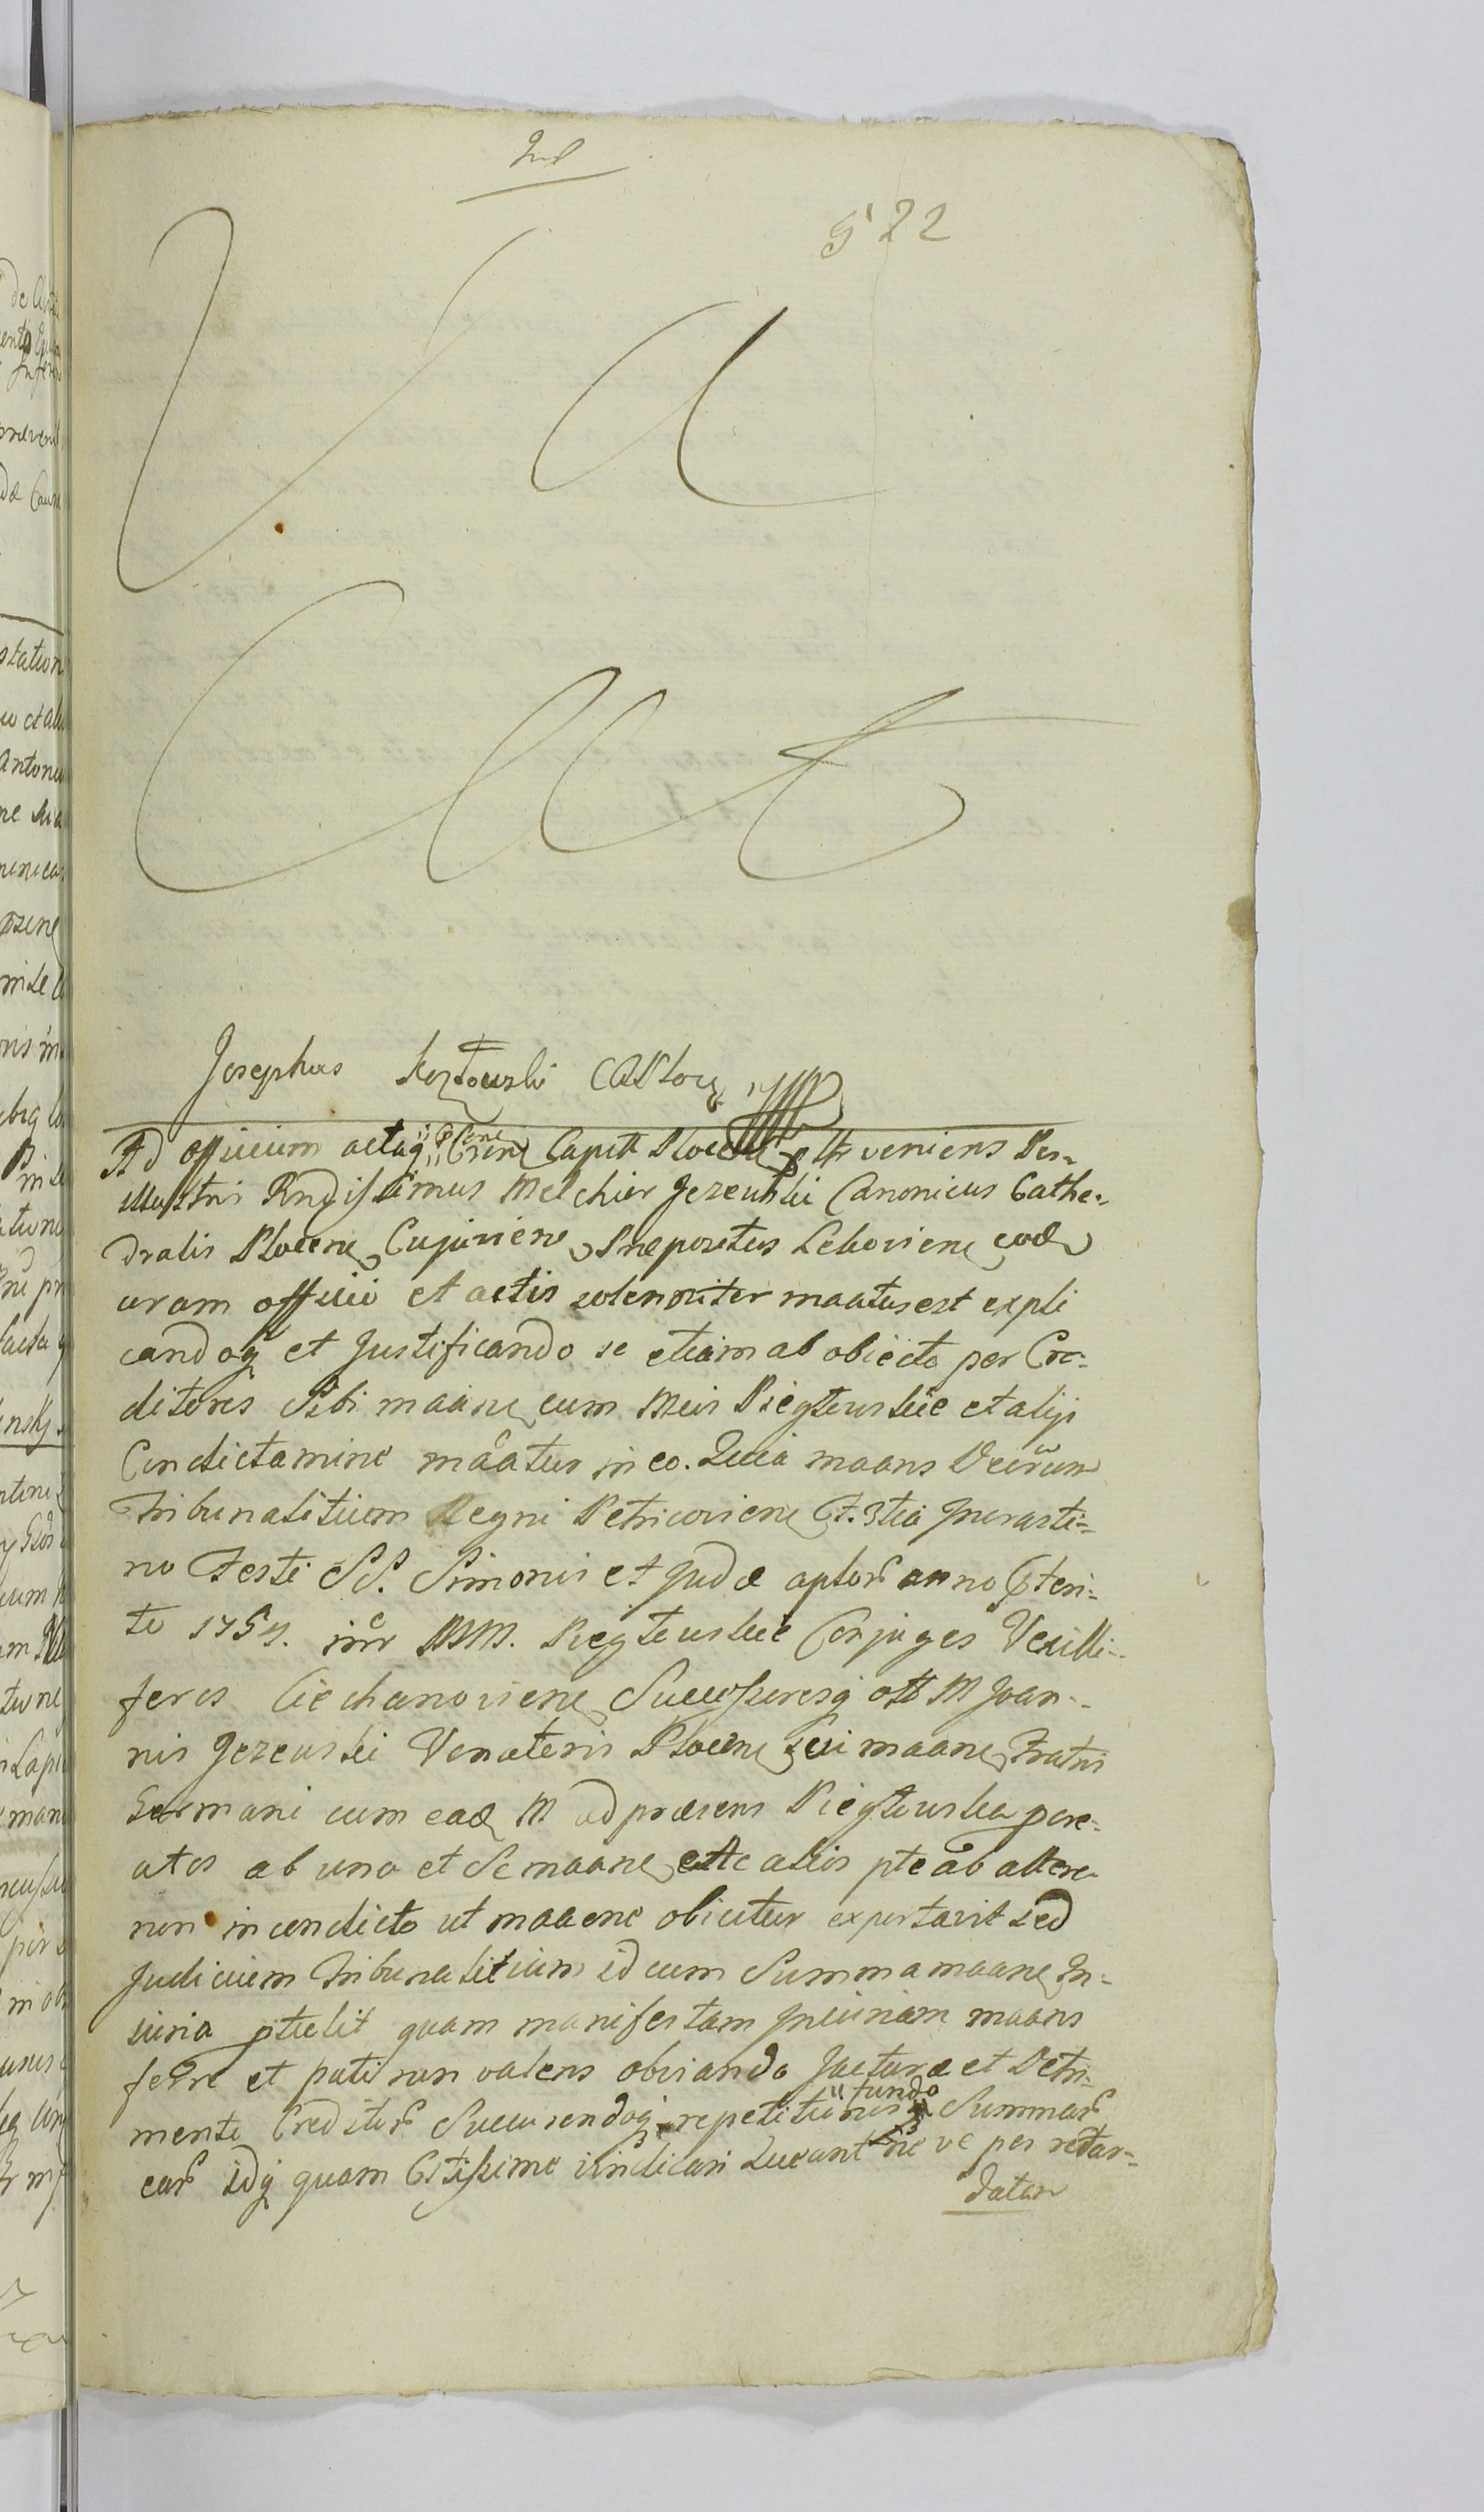 522
Vacat
Josephus CAPloc
Ad officium actaq Crene Capit Plocen veniens Per-
illustris Rndissimus Melchior Jezewski Canonicus Cathe-
dralis Plocene Cujaviene Præpositus eod
uram officio et actis solemniter maatus est expli
candoq et Justificando se etiam ab obiecto per Cre-
ditores Sibi maane cum Meis Piegtowskie et alijs
Condictamine maatur in eo. Quia maans Decrum
Tribunalitium Regni Petricoviene F. 3tia in crasti-
no Festi SS. Simonis et Judæ aplor anno pteri-
to 1757. inr MM. Piegtowskie Conjuges Vexilli-
feros Ciechanoviene Successoresq olt M Joan-
nis Jezewski Venatoris Plocene sui maane Fratris
Germani cum ead M ad præsens Piegtowska pore-
atos ab uno et Se maane alios pte ab altera
non in condicto ut maaene obicitur exportavit sed
Judicium Tribunalitium id cum Summa maane In-
iuria ptulit quam manifestam Injuriam maans
ferre et pati non valens obviando Jacturæ et Detri-
mento Creditor Succurendoq repetitionis fundo Summar
ear idq quam Cstissime vindicari queant ne ve per retar-
datan